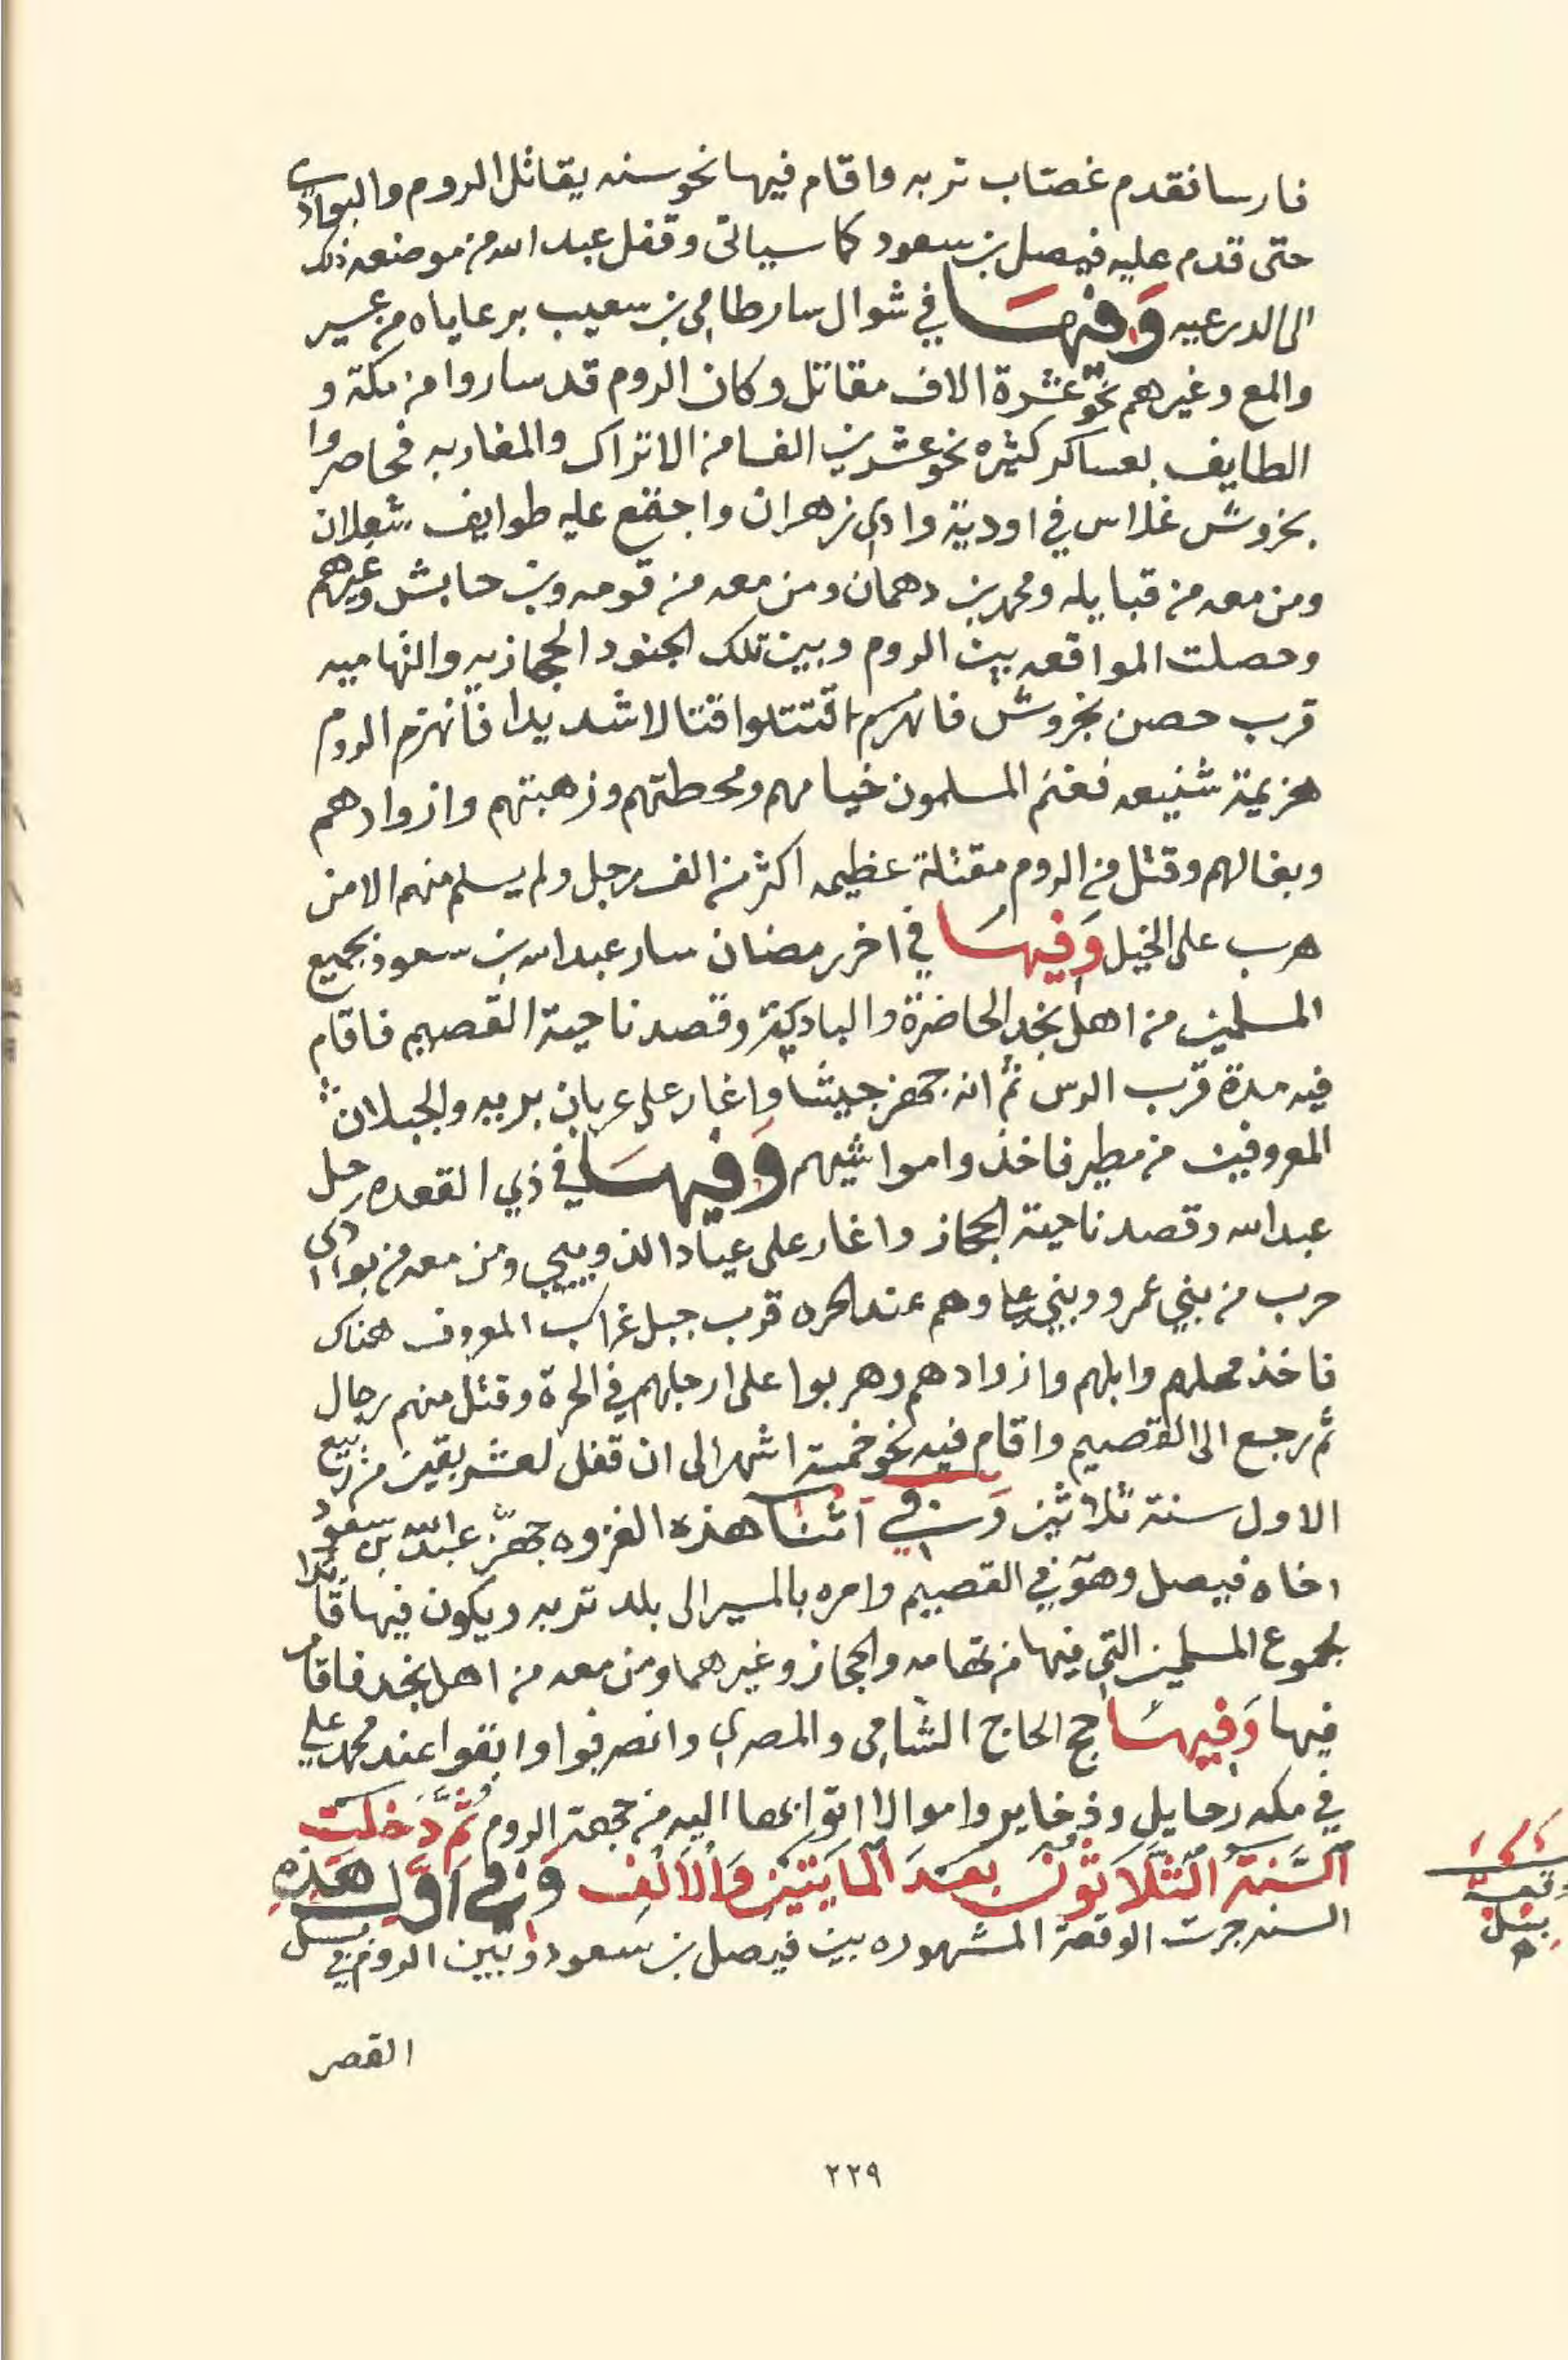 فارسا فقدم غصاب تربه واقام فيها نحو سنه يقاتل الروم والبوادي
حتى قدم عليه فيصل بن سعود كما سياتى وقفل عبد الله من موضعه ذلك
الى الدرعيه وَفيهَا في شوال سار طامي بن شعيب برعاياه من عسير
والمع وغيرهم نحو عشرة الاف مقاتل وكان الروم قد ساروا من مكة و
الطايف بعساكر كثيره نحو عشرين الفا من الاتراك والمغاربه فحاصروا
بخروش غلاس في اودية وادي زهران واجتمع عليه طوايف شعلان
ومن معه من قبايله ومحمد بن دهمان ومن معه من قومه وبن حابش وغيرهم
وحصلت المواقعه بين الروم وبين تلك الجنود الحجازيه والتهاميه
قرب حصن بخروش فانهزم اقتتلوا قتالا شديدا فانهزم الروم
هزيمة شنيعه فغنم المسلمون خيامهم ومحطتهم وزهبتهم وازوادهم
وبغالهم وقتل من الروم مقتلة عظيمه اكثر من الف رجل ولم يسلم منهم الا من
هرب على الخيل وَفيهَا في اخر رمضان سار عبد الله بن سعود بجميع
المسلمين من اهل نجد الحاضرة والبادية وقصد ناحية القصيم فاقام
فيه مدة قرب الرس ثم انه جهز جيشا واغار على عربان بريه والجبلان
المعروفين من مطير فاخذوا مواشيهم وَفيهَا في ذي القعده رحل
عبد الله وقصد ناحية الحجاز واغار على عياد الذويبي ومن معه من بوادي
حرب من بني عمرو وبني علي وهم عند الحره قرب جبل غراب المعروف هناك
فاخذ محلهم وابلهم وازوادهم وهربوا على ارجلهم في الحرة وقتل منهم رجال
ثم رجع الى القصيم واقام فيه نحو خمسة اشهر الى ان قفل لعشر بقين من ربيع
الاول سنة ثلاثين وَفي اثنا هذه الغزوه جهز عبد الله بن سعود
اخاه فيصل وهو في القصيم وامره بالمسير الى بلد تربه ويكون فيها قائدا
لجموع المسلمين التي فيها من تهامه والحجاز وغيرهما ومن معه من اهل نجد فاقام
فيها وَفيهَا حج الحاج الشامي والمصري وانصرفوا وابقوا عند محمد علي
في مكه رحايل وذخاير واموالا اتوا بها اليه من جهة الروم ثُمَّ دَخَلَت
اَلسَّنَةُ الثَّلَاثُونَ بَعدَ المايَتَين وَالاَلف وَفي اَوَّل هَذِهِ
السنه جرت الوقعة المشهوره بين فيصل بن سعود وبين الروم في بسل
وقعة
بسل
القصر
٢٢٩